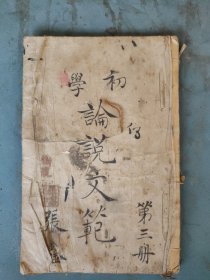 初學
論說文範
第三冊
張